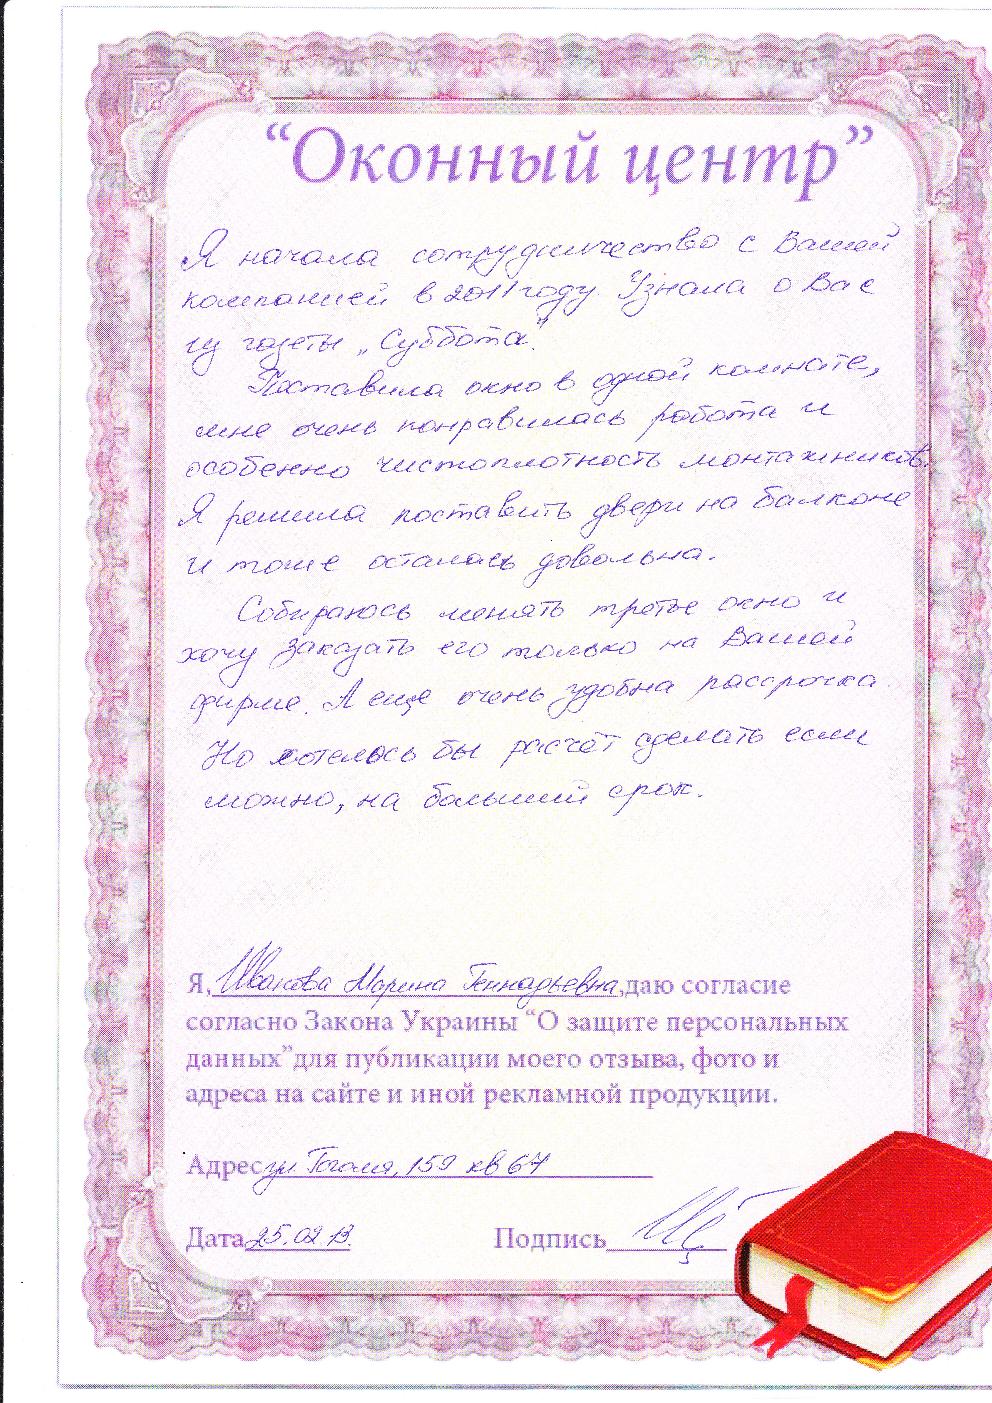 “Оконный центр”
Я начала сотрудничество с Вашей
компанией в 2011 году. Узнала о Вас
из газеты „Суббота“.
Поставила окно в одной комнате,
мне очень понравилась работа и
особенно чистоплотность монтажников.
Я решила поставить двери на балконе
и тоже осталась довольна.
Собираюсь менять третье окно и
хочу заказать его только на Вашей
фирме. А еще очень удобна рассрочка.
Но хотелось бы расчёт сделать если
можно, на больший срок.
Я, Иванова Марина Геннадьевна, даю согласие
согласно Закона Украины “О защите персональных
данных”для публикации моего отзыва, фото и
адреса на сайте и иной рекламной продукции.
Адрес ул. Гоголя, 159 кв 67
Дата 25.02.13. Подпись